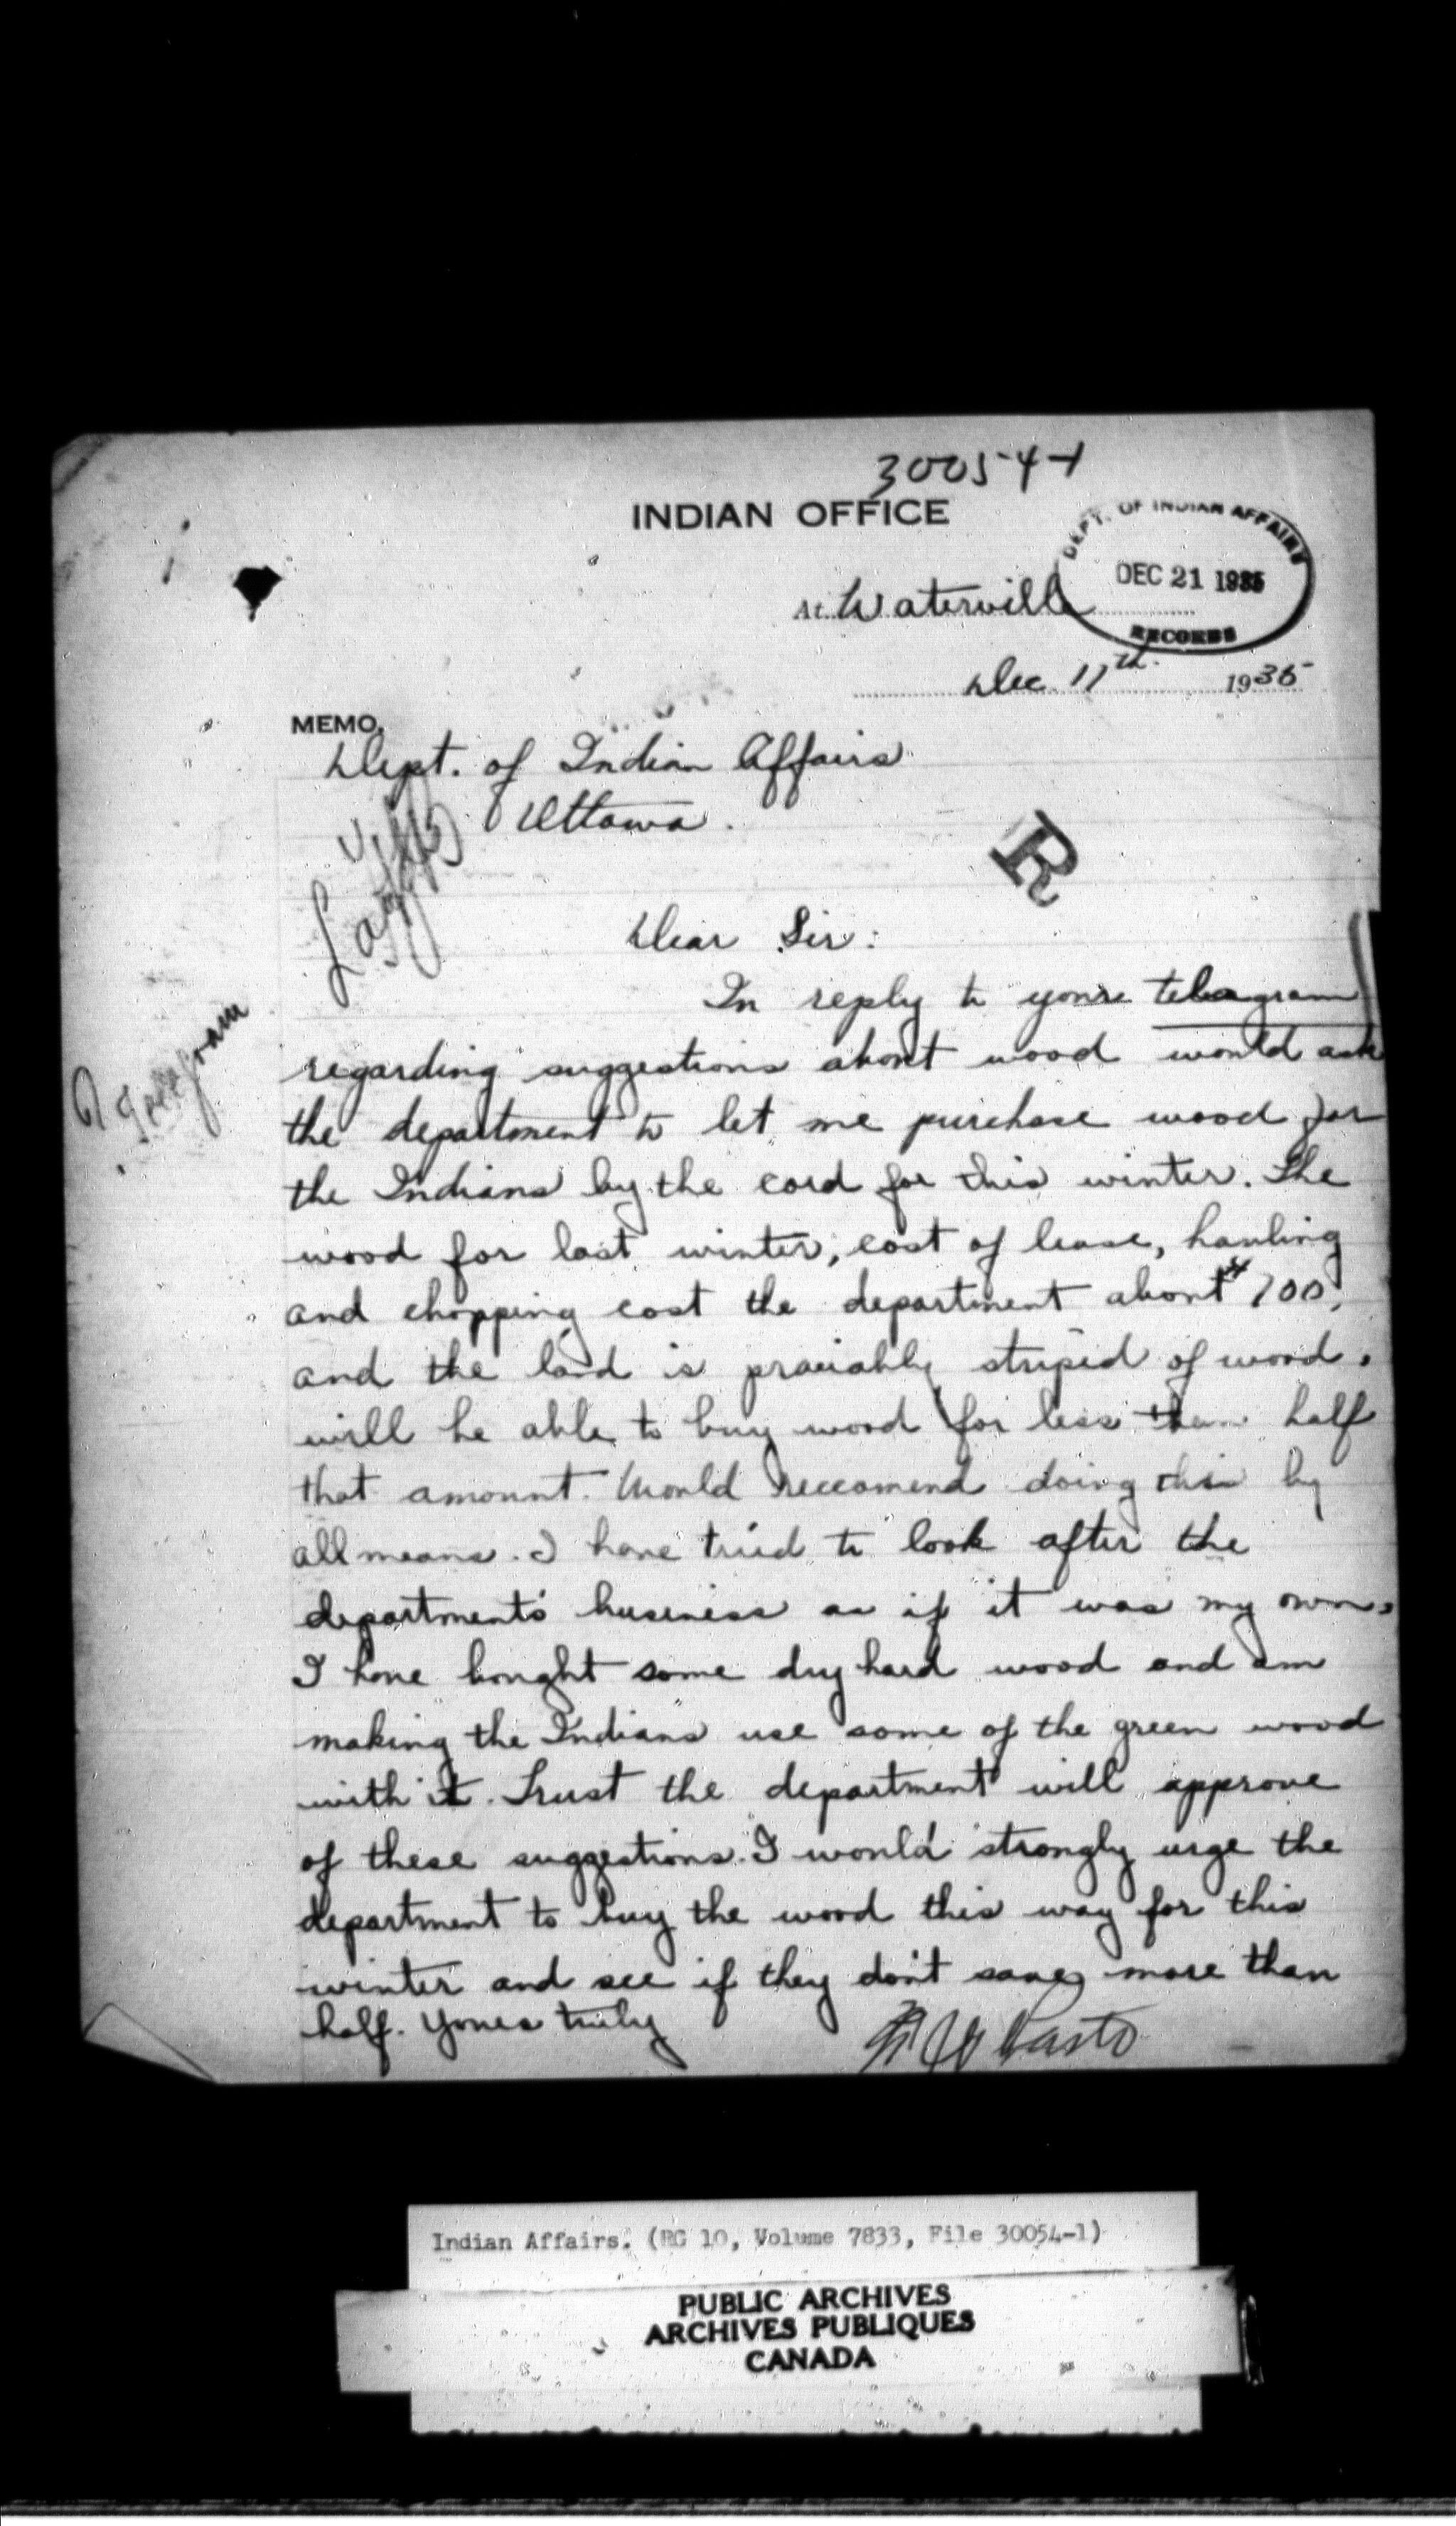 30054-1
INDIAN OFFICE
DEPT. OF INDIAN AFFAIRS
DEC 21 1935
RECORDS
At Waterville
Dec 11th 1935
MEMO.
Dept. of Indian Affairs
Ottawa.
R
Dear Sir:
In reply to youre telegram
regarding suggestions about wood would ask
the department to let me purchase wood for
the Indians by the cord for this winter. The
wood for last winter, cost of lease, hauling
and chopping cost the department about $700,
and the land is prauably striped of wood.
will be able to buy wood for less than half
that amount. Would reccomend doing this by
all means. I have tried to look after the
department's business as if it was my own.
I have bought some dry hard wood and am
making the Indians use some of the green wood
with it. Trust the department will approve
of these suggestions. I would strongly urge the
department to buy the wood this way for this
winter and see if they don't save more than
half. Youres truly
telegram
Indian Affairs. (RG 10, Volume 7833, File 30054-1)
PUBLIC ARCHIVES
ARCHIVES PUBLIQUES
CANADA